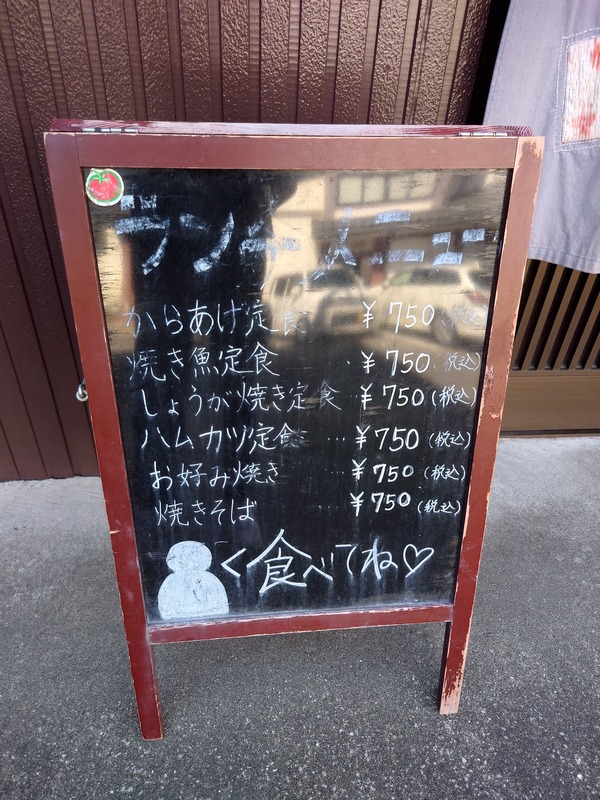 ランチメニュー
からあげ定食 ¥750(税込)
焼き魚定食 ･･¥750(税込)
しょうが焼き定食 ･･¥750(税込)
ハムカツ定食 ･･･¥750(税込)
お好み焼き ････¥750(税込)
焼きそば ････¥750(税込)
<食べてね♡